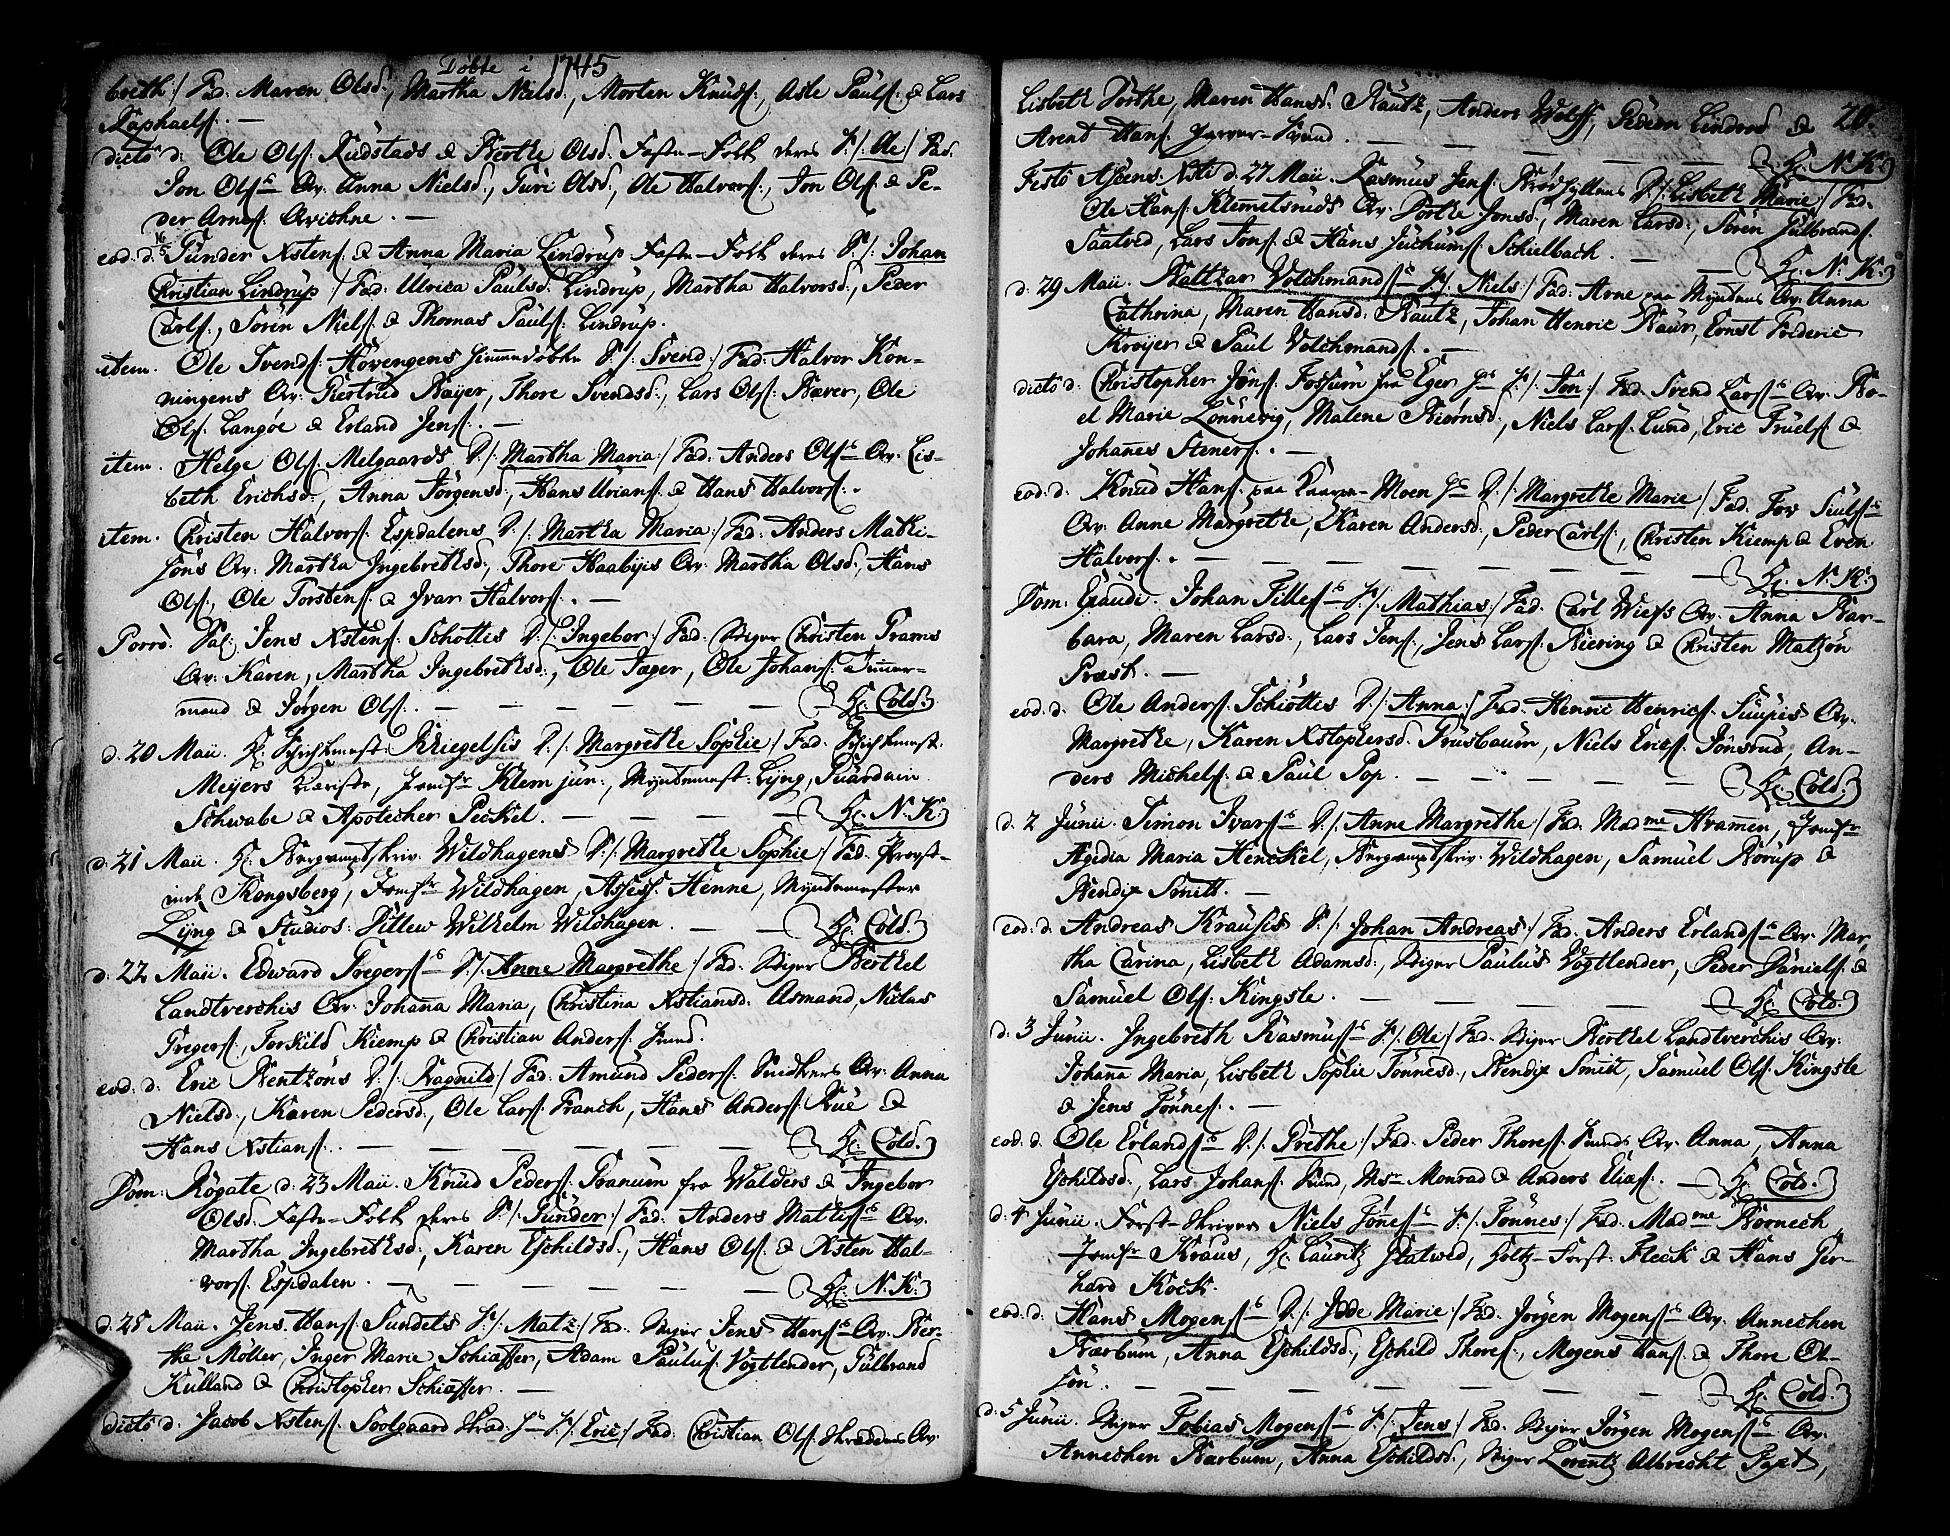 Döbte i 1745
breth :/ Fad. Maren Olsd:, Martha Nielsd:, Morten Knudss:, Asle Paulss: & Lars
Raphaelss: . —
dicto d: Ole Olss: Rudstads & Berthe Olsd: Feste-Folk deres S:/: Ole :/ Fad.
Jon Olss: Qv: Anna Nielsd:, Turi Olsd:, Ole Halvorss:, Jon Olss: & Pe-
der Arness: Qvichne . —
eod. d: 16/5 Gunder Xstenss: & Anna Maria Lindrup Feste-Folk deres S:/: Johan
Christian Lindrup :/ Fad: Ulrica Paulsd: Lindrup, Martha Halvorsd:, Peder
Carlss:, Sören Nielss: & Thomas Paulss: Lindrup.
item. Ole Svendss: Hövengens hiemmedöbte S:/: Svend :/ Fad: Halvor Kon-
ningens Qv: Giertrud Bayer, Thore Svendsd:, Lars Olss: Baver, Ole
Olss: Langöe & Erland Jenss: . —
item. Helge Olss: Melgaards D:/: Martha Maria :/ Fad: Anders Olss: Qv: Lis-
beth Erichsd:, Anna Jörgensd:, Hans Urianss: & Hans Halvorss: .
item. Christen Halvorss: Espdalens D:/: Martha Maria :/ Fad: Anders Mathi-
söns Qv: Martha Ingebrethsd:, Thore Haabyis Qv: Martha Olsd:, Hans
Olss:, Ole Torstenss: & Ivar Halvorss: . —
Porro. Sal: Jens Xstenss: Schottis D:/: Ingebor :/ Fad: Christen Prams
Qv: Karen, Martha Ingebrethsd:, Ole Jæger, Ole Johanss: Timmer-
mand & Jörgen Olss: . — Hr: Cold:
d. 20 Maii. Hr: Kriegelsis D:/: Margrethe Sophie :/ Fad:
Meyers Kiæreste, Jomfr Klem jun:, Myntemest: Lyng, Guardein
Schwabe & Apotecher Peckel. — Hr: N: K:
d. 21 Maii. Hr: Bergamptskriv: Wildhagens D:/: Margrethe Sophie :/ Fad:
Kongsberg, Jomfr Wildhagen, Assess: Henne, Myntemester
Lyng & Studios: Ditlew Wilhelm Wildhagen . — Hr: Cold:
d. 22 Maii. Edward Gregerss: D:/: Anne Margrethe :/ Fad: Berthel
Landtverchis Qv: Johanna Maria, Christina Xstiansd: Asmand, Niclas
Gregerss:, Torkild Kiemp & Christian Anderss: Lund.
eod: d: Eric Bentzöns D:/: Ragnild :/ Fad: Amund Pederss: Snidkers Qv: Anna
Nielsd:, Karen Pedersd:, Ole Larss: Franch, Hans Anderss: Rue &
Hans Xstianss: . — Hr: Cold:
Dom: Rogate d: 23 Maii. Knud Pederss: Granum fra Walders & Ingebor
Olsd: Feste-Folk deres S:/: Gunder :/ Fad: Anders Mathiss: Qv:
Martha Ingebrethsd:, Karen Eschildsd:, Hans Olss: & Xsten Hal-
vorss: Espdalen . — Hr: N: K:
d: 25 Maii. Jens Hanss: Sundets S:/: Matz :/ Fad: Jens Hanss: Qv: Ber-
the Möller, Inger Marie Schiasser, Adam Pauluss: Vogtlender, Gulbrand
Kulland & Christopher Schiasser . —
dicto d: Jacob Xstenss: Soolgaard Skrad: S:/: Eric :/ Fad: Christian Olss: Skredders Qv:
20.
Lisbeth Dorthe, Maren Hansd: Rautz, Anders Wolff, Pedern Lindved &
Arent Hanss: — Hr: N: K:
Festo Ascens: Xsti d. 27 Maii. Rasmus Jenss: D:/: Lisbeth Marie :/ Fad.
Ole Hanss: Klemetsruds Qv: Dorthe Jonsd:, Maren Larsd:, Sören Gulbrandss:
Saatved, Lars Jonss: & Hans Juchumss: Schielbach . — Hr: N: K:
d. 29 Maii. Baltzar Volchmandss: S:/: Niels :/ Fad: Arne paa Myntens Qv: Anna
Cathrina, Maren Hansd: Rautz, Johan Henric Baur, Ernest Frideric
Kroyer & Paul Volchmandss: . —
dicto d: Christopher Jönss: Fossum fra Eger S:/: Jon :/ Fad: Svend Larss: Qv: Bo-
el Marie Lönnevig, Malene Biörnsd:, Niels Larss: Lund, Eric Truelss: &
Johanes Stenerss: . —
eod. d: Knud Hanss: paa Moen D:/: Margrethe Marie :/ Fad: Tov Siulss:
Qv: Anne Margrethe, Karen Andersd:, Peder Carlss:, Christen Kiemp & Even
Halvorss: . — Hr: N: K:
Dom: Exaudi. Johan Tilless: S:/: Mathias :/ Fad: Carl Wiess Qv: Anna Bar-
bara, Maren Larsd:, Lars Jenss:, Jens Larss: Biering & Christen Matzön
Præst . —
eod. d: Ole Anderss: Schiöttis D:/: Anna :/ Fad: Henric Henricss: Suupis Qv:
Margrethe, Karen Xstophersd: Grusbaum, Niels Ericss: Jönsrud, An-
ders Michelss: & Paul Pop. — Hr: Cold:
d. 2 Junii. Simon Ivarss: D:/: Anne Margrethe :/ Fad: Madme Hvammen, Jomfr
Ægidia Maria Henckel, Bergamptskriv: Wildhagen, Samuel Borup &
Bendix Smitt. —
eod: d: Andreas Krausis S:/: Johan Andreas :/ Fad: Anders Erlandss: Qv: Mar-
tha Carina, Lisbeth Adamsd:, Paulus Vogtlender, Peder Danielss: &
Samuel Olss: Kingste . — Hr: Cold:
d. 3 Junii. Ingebreth Rasmuss: S:/: Ole :/ Fad: Berthel Landtverchis Qv:
Johanna Maria, Lisbeth Sophie Tönnesd:, Bendix Smitt, Samuel Olss: Kingste
& Jens Tönness: . —
eod: d: Ole Erlandss: D:/: Grethe :/ Fad: Peder Thoress: Lunds Qv: Anna, Anna
Eschildsd:, Lars Johanss: Lund, Msr Monrad & Anders Eliass: . — Hr: Cold:
d. 4 Junii. Forst-skriver Niels Tönness: S:/: Tönnes :/ Fad: Madme Bornech,
Jomfr Kraus, Hr: Lauritz Flatved, Holtz-Forst: Fleck & Hans Ger-
hard Kock.
eod: d: Hans Mogenss: D:/: Jode Marie :/ Fad: Jörgen Mogenss: Qv: Annechen
Barbum, Anna Eschildsd:, Eschild Thoress:, Mogens Hanss: & Thore Ol-
sön . — Hr: Cold:
d. 5 Junii. Tobias Mogenss: S:/: Jens :/ Fad: Jörgen Mogenss: Qv:
Annechen Barbum, Anna Eschildsd:, Lorentz Albrecht Paxt,